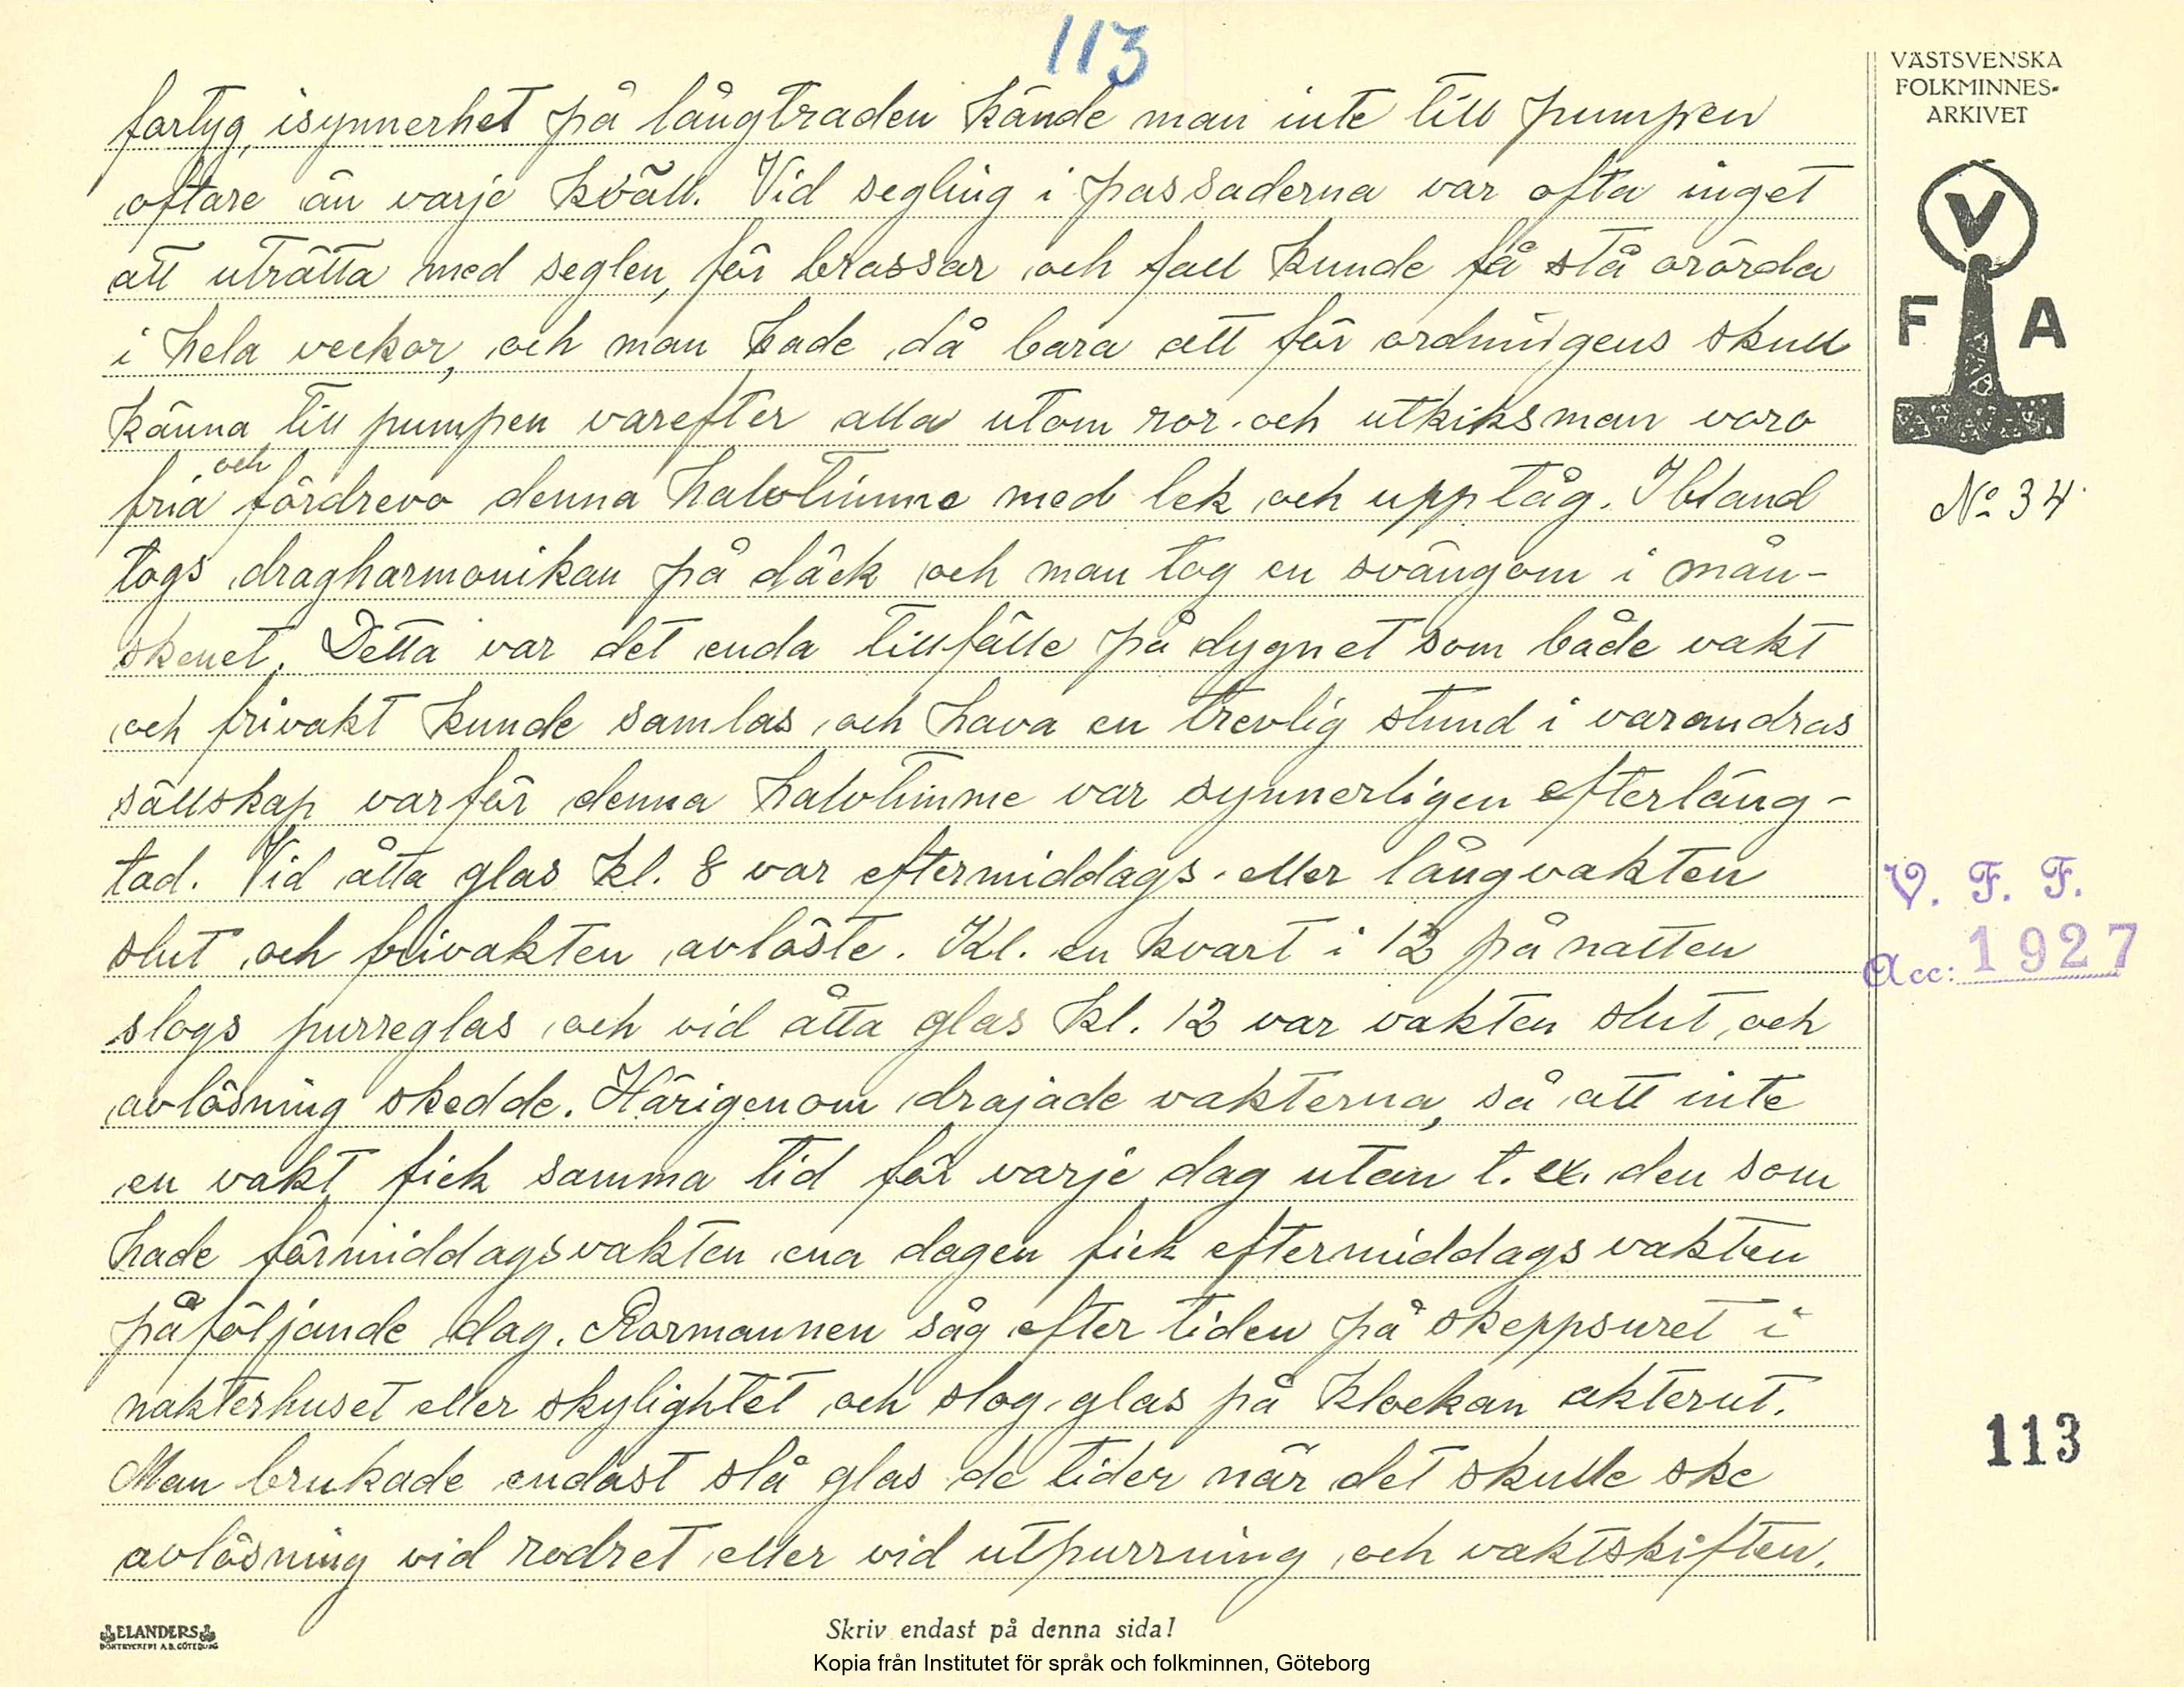 113
fartyg, isynnerhet på långtraden kände man inte till pumpen
oftare än varje kväll. Vid segling i passaderna var ofta inget
att uträtta med seglen, för brassar och fall kunde få stå orörda
i hela veckor, och man hade då bara att för ordningens skull
känna till pumpen varefter alla utom ror- och utkiksman voro
fria och fördrevo denna halvtimme med lek och upptåg. Ibland
togs dragharmonikan på däck och man tog en svängom i mån-
skenet. Detta var det enda tillfälle på dygnet som både vakt
och frivakt kunde samlas och hava en trevlig stund i varandras
sällskap varför denna halvtimme var synnerligen efterläng-
tad. Vid åtta glas kl. 8 var eftermiddags- eller långvakten
slut och frivakten avlöste. Kl. en kvart i 12 på natten
slogs purreglas och vid åtta glas kl. 12 var vakten slut och
avlösning skedde. Härigenom drajade vakterna, så att inte
en vakt fick samma tid för varje dag utan t. ex. den som
hade förmiddagsvakten ena dagen fick eftermiddagsvakten
påföljande dag. Rormannen såg efter tiden på skeppsuret i
nakterhuset eller skylightet och slog glas på klockan akterut.
Man brukade endast slå glas de tider när det skulle ske
avlösning vid rodret eller vid utpurrning och vaktskiften.
VÄSTSVENSKA
FOLKMINNES-
ARKIVET
V
F A
No 34
V. F. F.
Acc: 1927
113
ELANDERS
BOKTRYCKERI A.B. GÖTEBORG
Skriv endast på denna sida!
Kopia från Institutet för språk och folkminnen, Göteborg